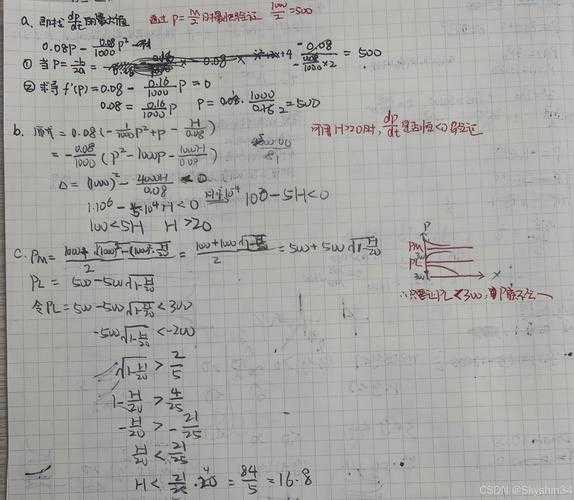 a. 即求 dp/dt 的最大值 通过 P = M/2 时最大验证 1000/2 = 500
0.08P - 0.08/1000 P²
① 当 P = -b/2a = -0.08/(-0.08/1000 × 2) = 500
② 求导 f'(P) = 0.08 - 0.16/1000 P = 0
0.08 = 0.16/1000 P P = 0.08 · 1000/0.16 = 500
b. 原式 = 0.08(-1/1000 P² + P - H/0.08)
= -0.08/1000 (P² - 1000P + 1000H/0.08)
Δ = (1000)² - 4000H/0.08 < 0
1·10⁶ - 5·10⁴H < 0 同÷10⁴ 100 - 5H < 0
100 < 5H H > 20
H>20时, dp/dt 是否恒<0验证
c. PM = = = 500 + 500√(1-H/20)
PL = 500 - 500√(1-H/20)
令PL = 500 - 500√(1-H/20) < 300
-500√(1-H/20) < -200
√(1-H/20) > 2/5
1 - H/20 > 4/25
-H/20 > -21/25
H/20 < 21/25
H < 21/25 · 20 = 84/5 = 16.8
P
PM
PL
300
x
PL < 300,
CSDN @Skyshin34